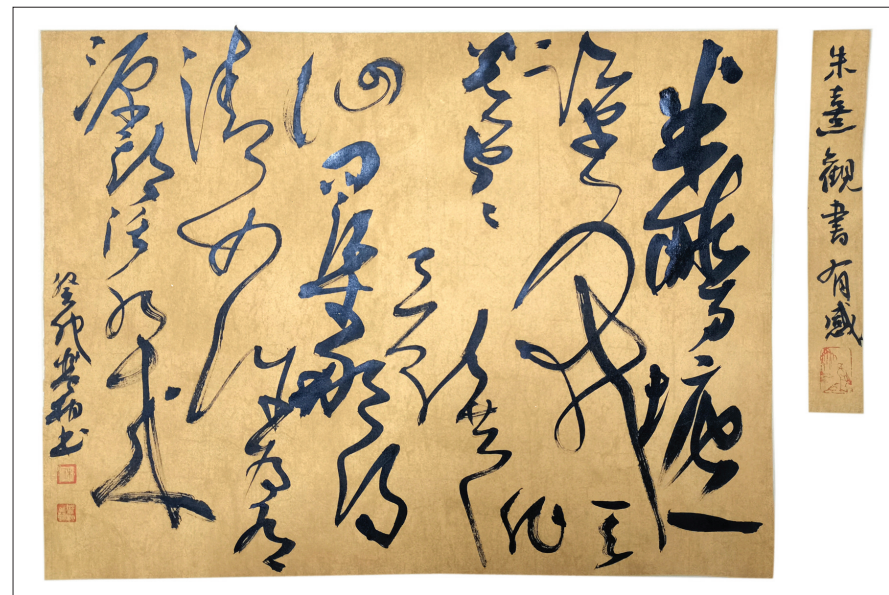 朱熹觀書有感
半畝方塘一
鑒開天光
雲影共
徘徊
問渠那得
清如許
為有
源頭活水來